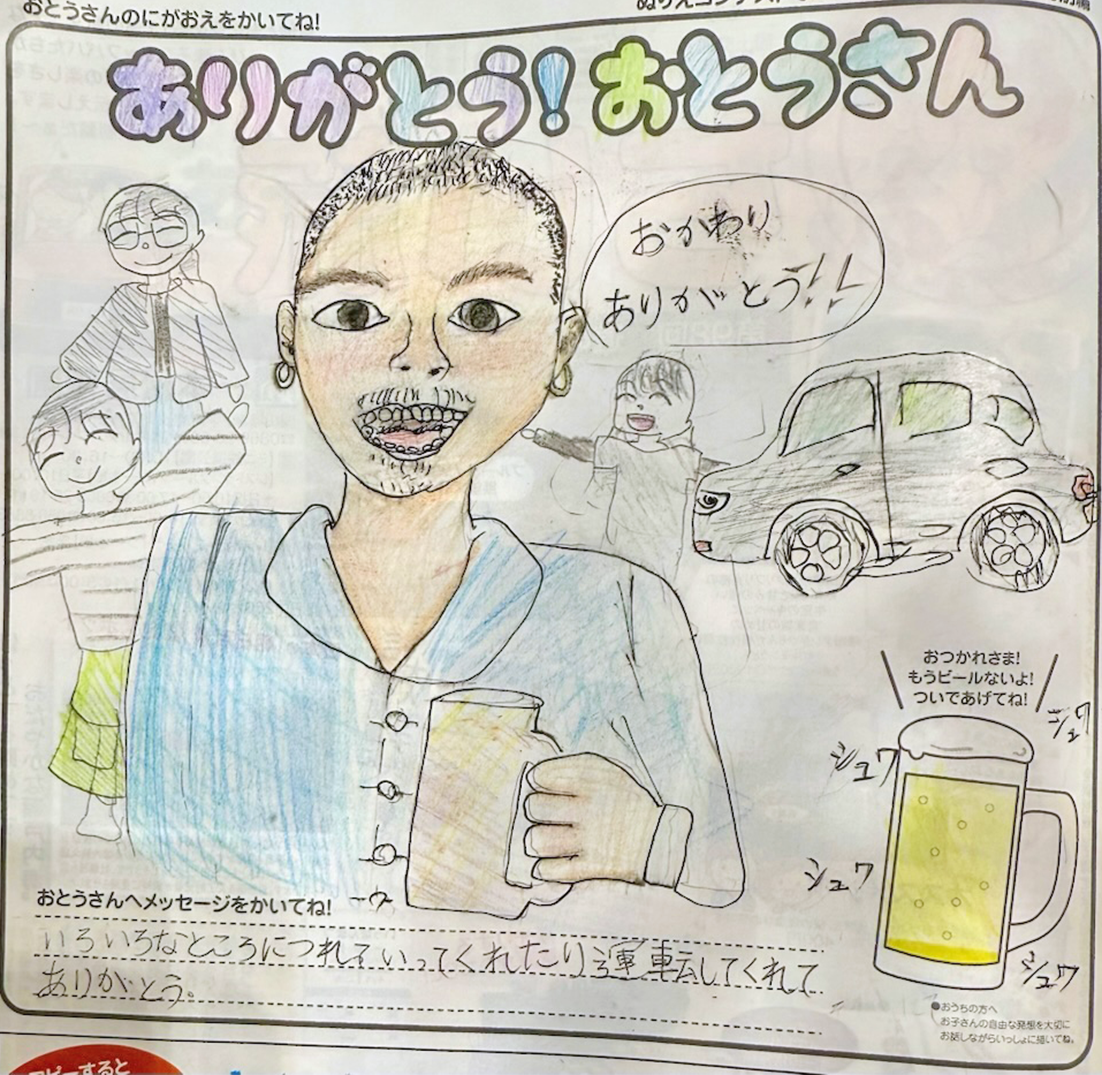 おとうさんのにがおえをかいてね!
ありがとう!おとうさん
おかわり
ありがとう!!
おつかれさま!
もうビールないよ!
ついであげてね!
シュワ
シュワ
シュワ
シュワ
おとうさんへメッセージをかいてね!
いろいろなところにつれていってくれたり運転してくれて
ありがとう。
●おうちの方へ
お子さんの自由な発想を大切に
お話しながらいっしょに描いてね。
コピーすると